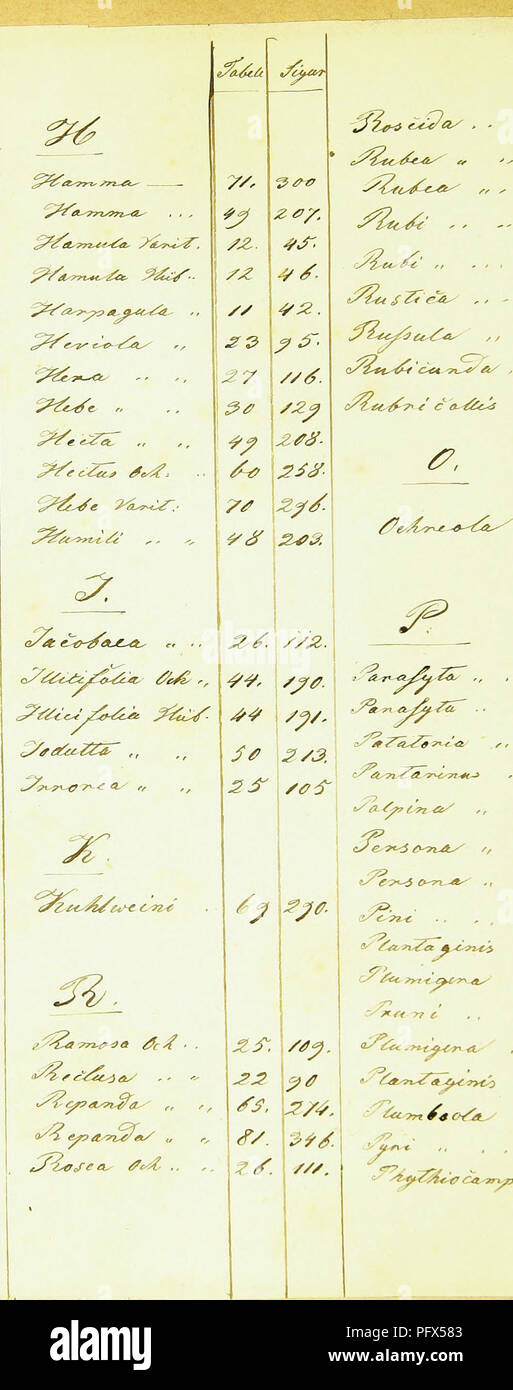 Tabele Figur
H
Hamma — 71. 300
Hamma ... 49 207.
Hamula Varit. 12. 45.
Hamula Hüb.. 12 46.
Harpagula " 11 42.
Heviola " 23 95.
Hera " " 27 116.
Hebe " " 30 129
Hecta " " 49 208.
Hectus Och. .. 60 258.
Hebe Varit: 70 296.
Humili " " 48 203.
J.
Jacobaea " .. 26. 112.
Illicifolia Och ., 44. 190.
Illicifolia Hüb. 44 191.
Jodutta " " 50 213.
Irrorea " " 25 105
K.
Kuhlweini . 69 290.
R.
Ramosa Och.. 25. 109.
Reclusa .. " 22 90
Repanda " " 65. 274.
Repanda " " 81. 346.
Rosea Och .. .. 26. 111.
Roscida . .
Rubea " "
Rubea " "
Rubi .. "
Rubi " ...
Rustica .. "
Russula "
Rubicunda .
Rubricollis
O.
Ochreola
P.
Parasyta " .
Parasyta ..
Patatoria "
Pantarinus .
Palpina "
Persona "
Persona "
Pini .. . .
Plantaginis
Plumigera
Pruni ..
Plumigera .
Plantaginis
Plumbeola
Pyri " . .
Phythiocamp
alamy
Image ID: PFX583
www.alamy.com